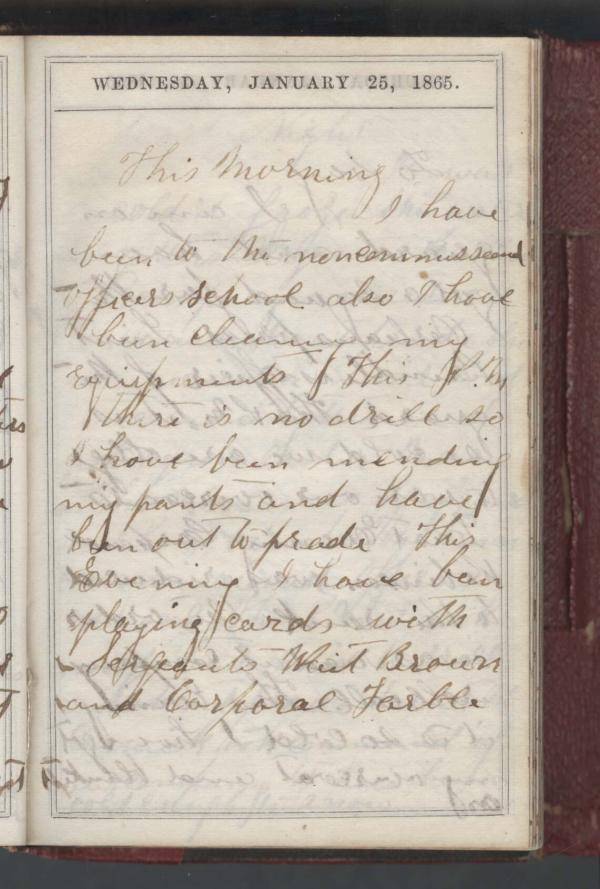 WEDNESDAY, JANUARY 25, 1865.
This Morning
I have
been to the noncommissend
officers school also I have
been cleaning my
equipments This P.M
there is no drill so
I have been mending
my pants and have
been out to prade This
Evening I have been
playing cards with
Sergeants Whit Brown
and Corporal Farble